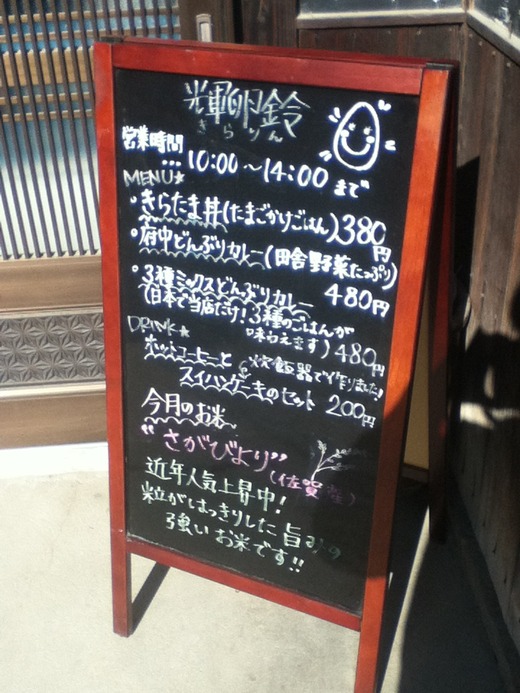 輝卵鈴
きらりん
営業時間
… 10:00～14:00 まで
MENU★
・きらたま丼(たまごかけごはん)380円
・府中どんぶりカレー(田舎野菜たっぷり)
480円
・3種ミックスどんぶりカレー
(日本で当店だけ！3種のごはんが
味わえます)480円
DRINK★
ホットコーヒーと 炊飯器で作りました！
スイハンケーキのセット 200円
今月のお米、
“さがびより”
(佐賀産)
近年人気上昇中！
粒がはっきりした旨みの
強いお米です!!